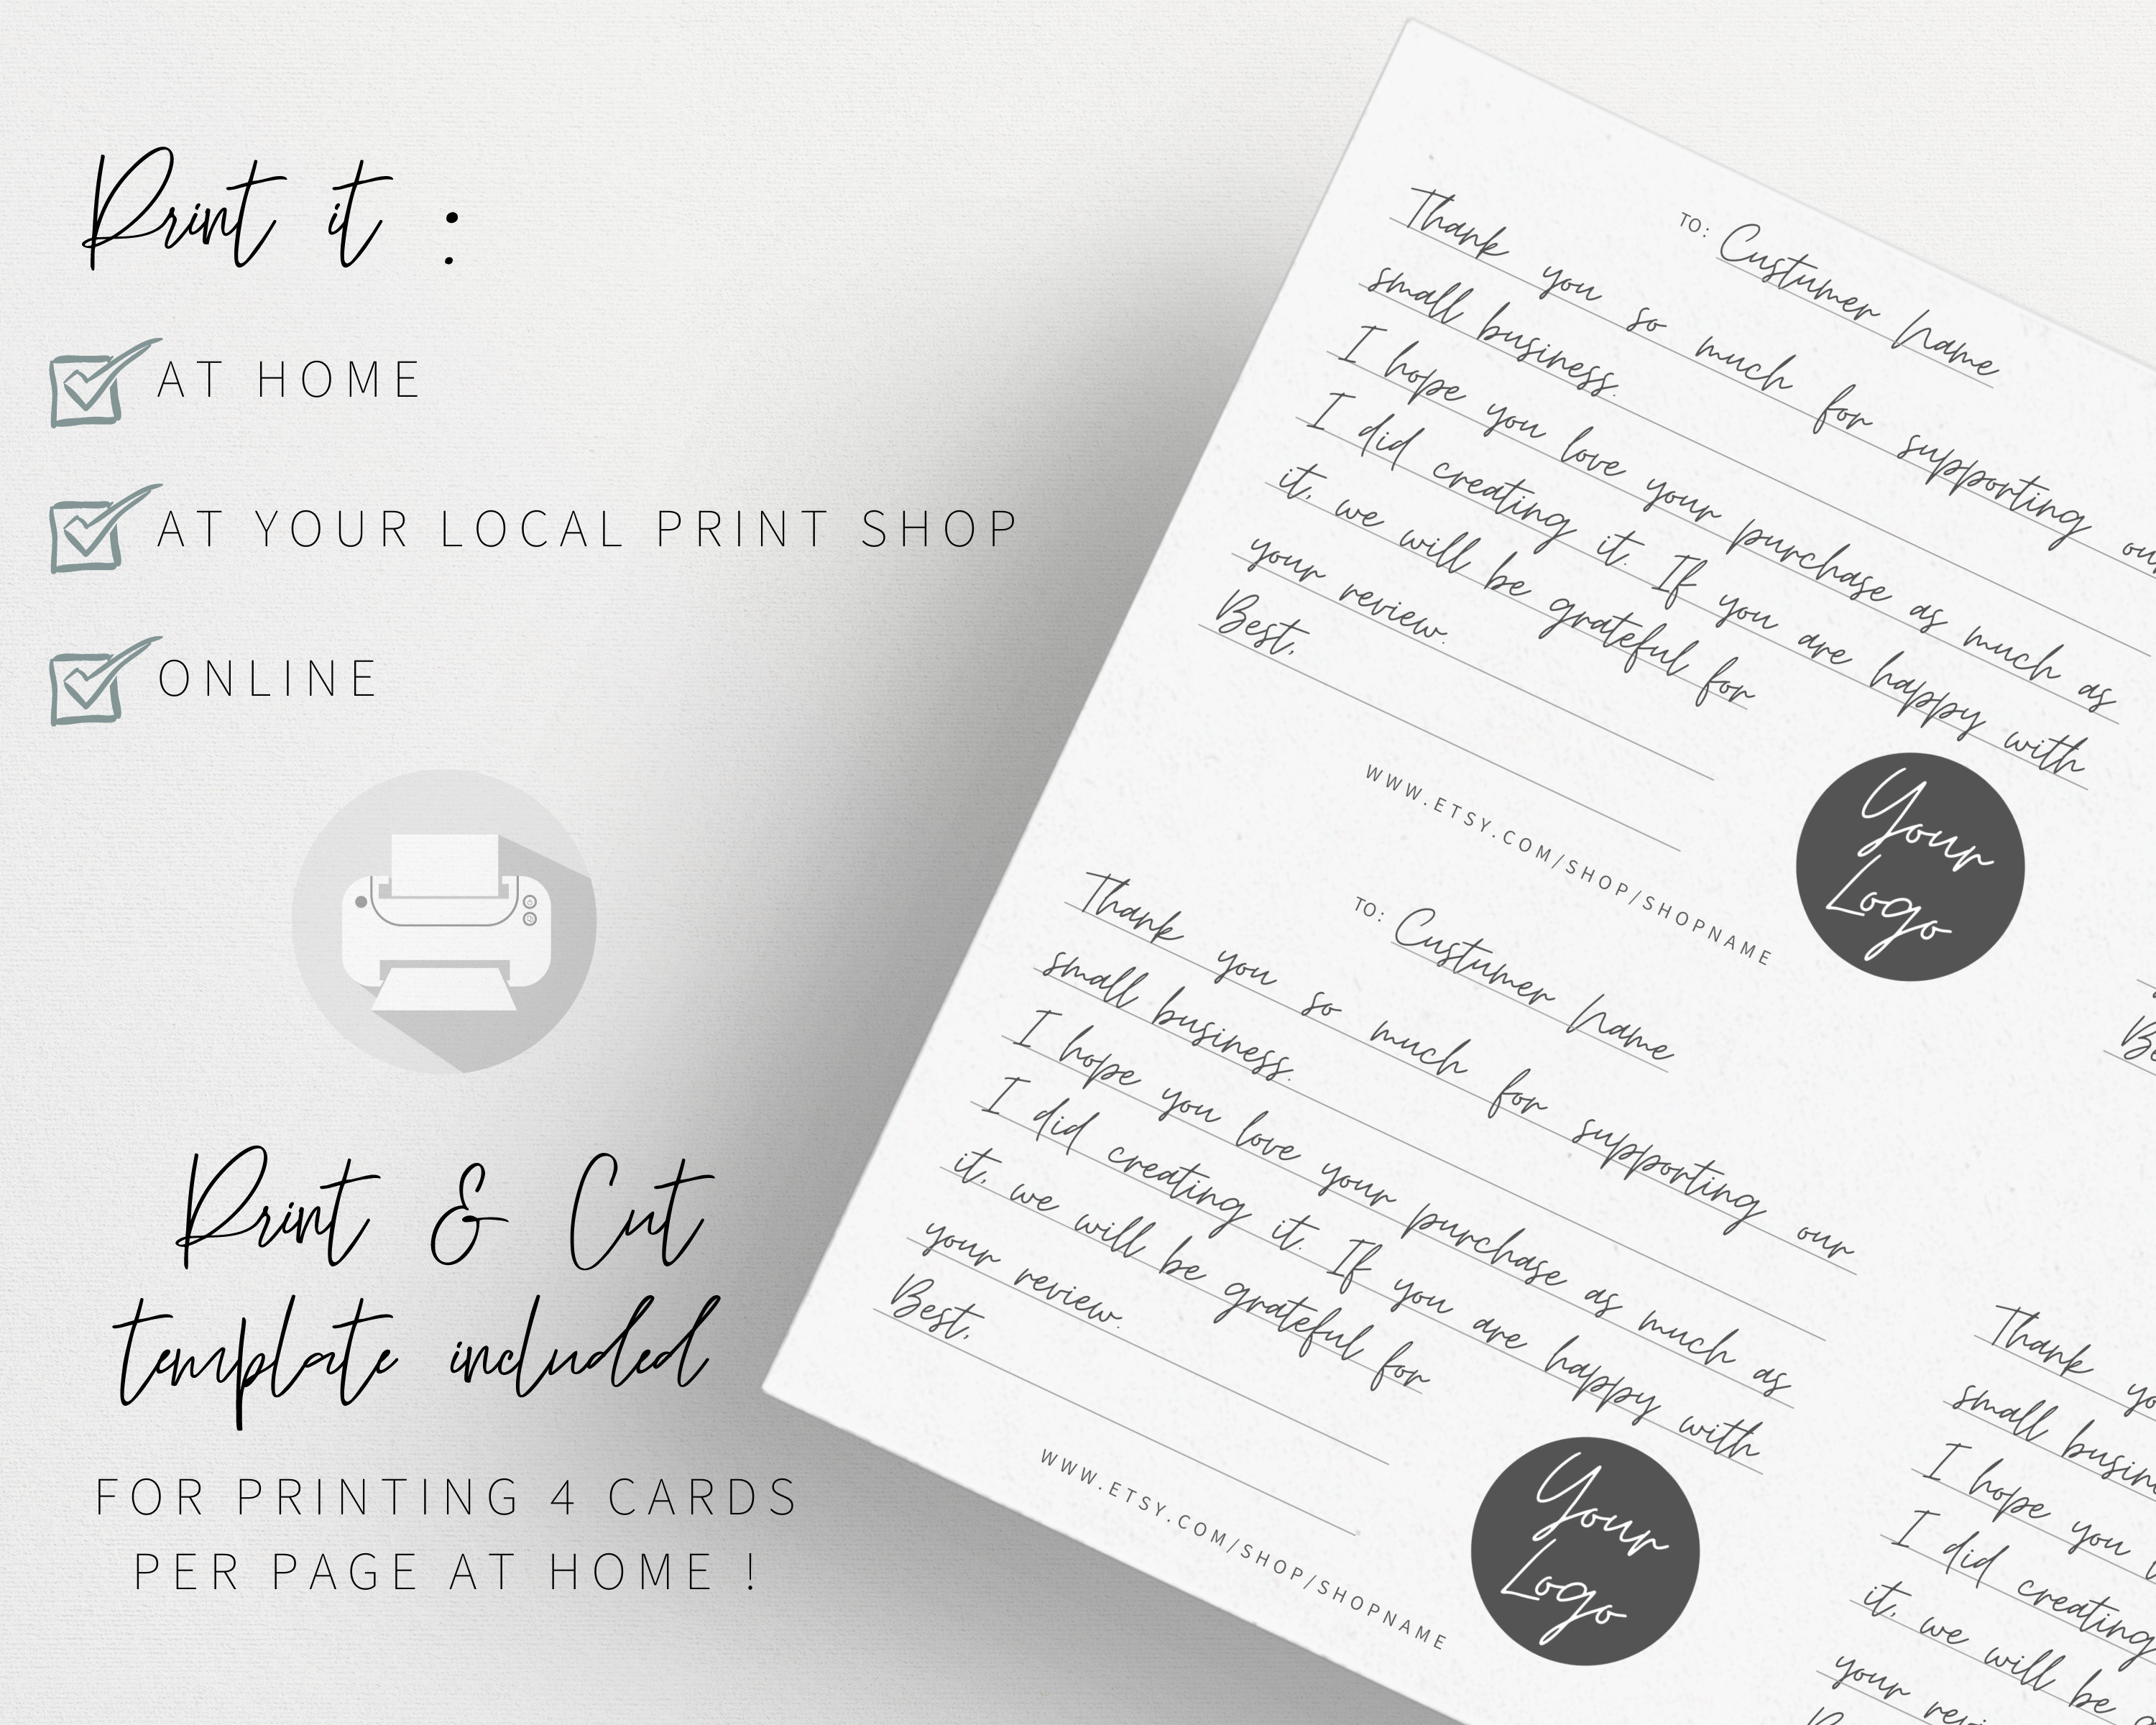 Print it :
AT HOME
AT YOUR LOCAL PRINT SHOP
ONLINE
Print & Cut
template included
FOR PRINTING 4 CARDS
PER PAGE AT HOME !
TO: Custumer Name
Thank you so much for supporting our
small business.
I hope you love your purchase as much as
I did creating it. If you are happy with
it, we will be grateful for
your review.
Best,
WWW.ETSY.COM/SHOP/SHOPNAME
Your
Logo
TO: Custumer Name
Thank you so much for supporting our
small business.
I hope you love your purchase as much as
I did creating it. If you are happy with
it, we will be grateful for
your review.
Best,
WWW.ETSY.COM/SHOP/SHOPNAME
Your
Logo
Thank
small
I hope you
I did creating
it, we will be
your